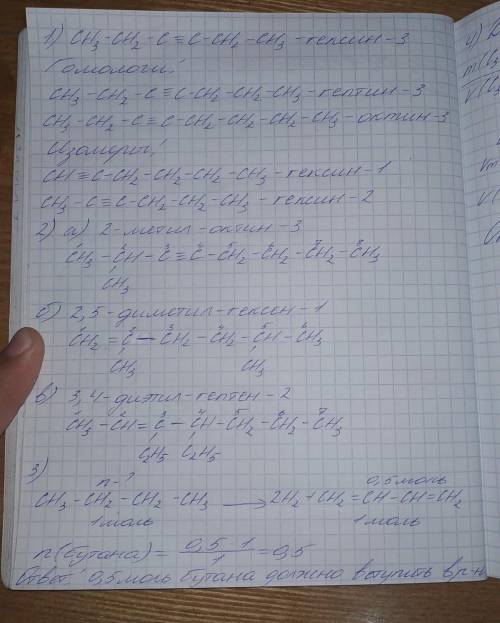 1) CH3-CH2-C≡C-CH2-CH3-гексин-3
Гомологи:
CH3-CH2-C≡C-CH2-CH2-CH3-гептин-3
CH3-CH2-C≡C-CH2-CH2-CH2-CH3-октин-3
Изомеры:
CH≡C-CH2-CH2-CH2-CH3-гексин-1
CH3-C≡C-CH2-CH2-CH3-гексин-2
2) а) 2-метил-октин-3
1 2 3 4 5 6 7 8
CH3-CH-C≡C-CH2-CH2-CH2-CH3
CH3
б) 2,5-диметил-гексен-1
1 2 3 4 5 6
CH2=C-CH2-CH2-CH-CH3
CH3 CH3
в) 3,4-диэтил-гептен-2
1 2 3 4 5 6 7
CH3-CH=C-CH-CH2-CH2-CH3
C2H5 C2H5
3)
n-? 0,5 моль
CH3-CH2-CH2-CH3 → 2H2+CH2=CH-CH=CH2
1 моль 1 моль
n(бутана)= 0,5·1 / 1 =0,5
Ответ: 0,5 моль бутана должно вступить в р-н
4)
m(